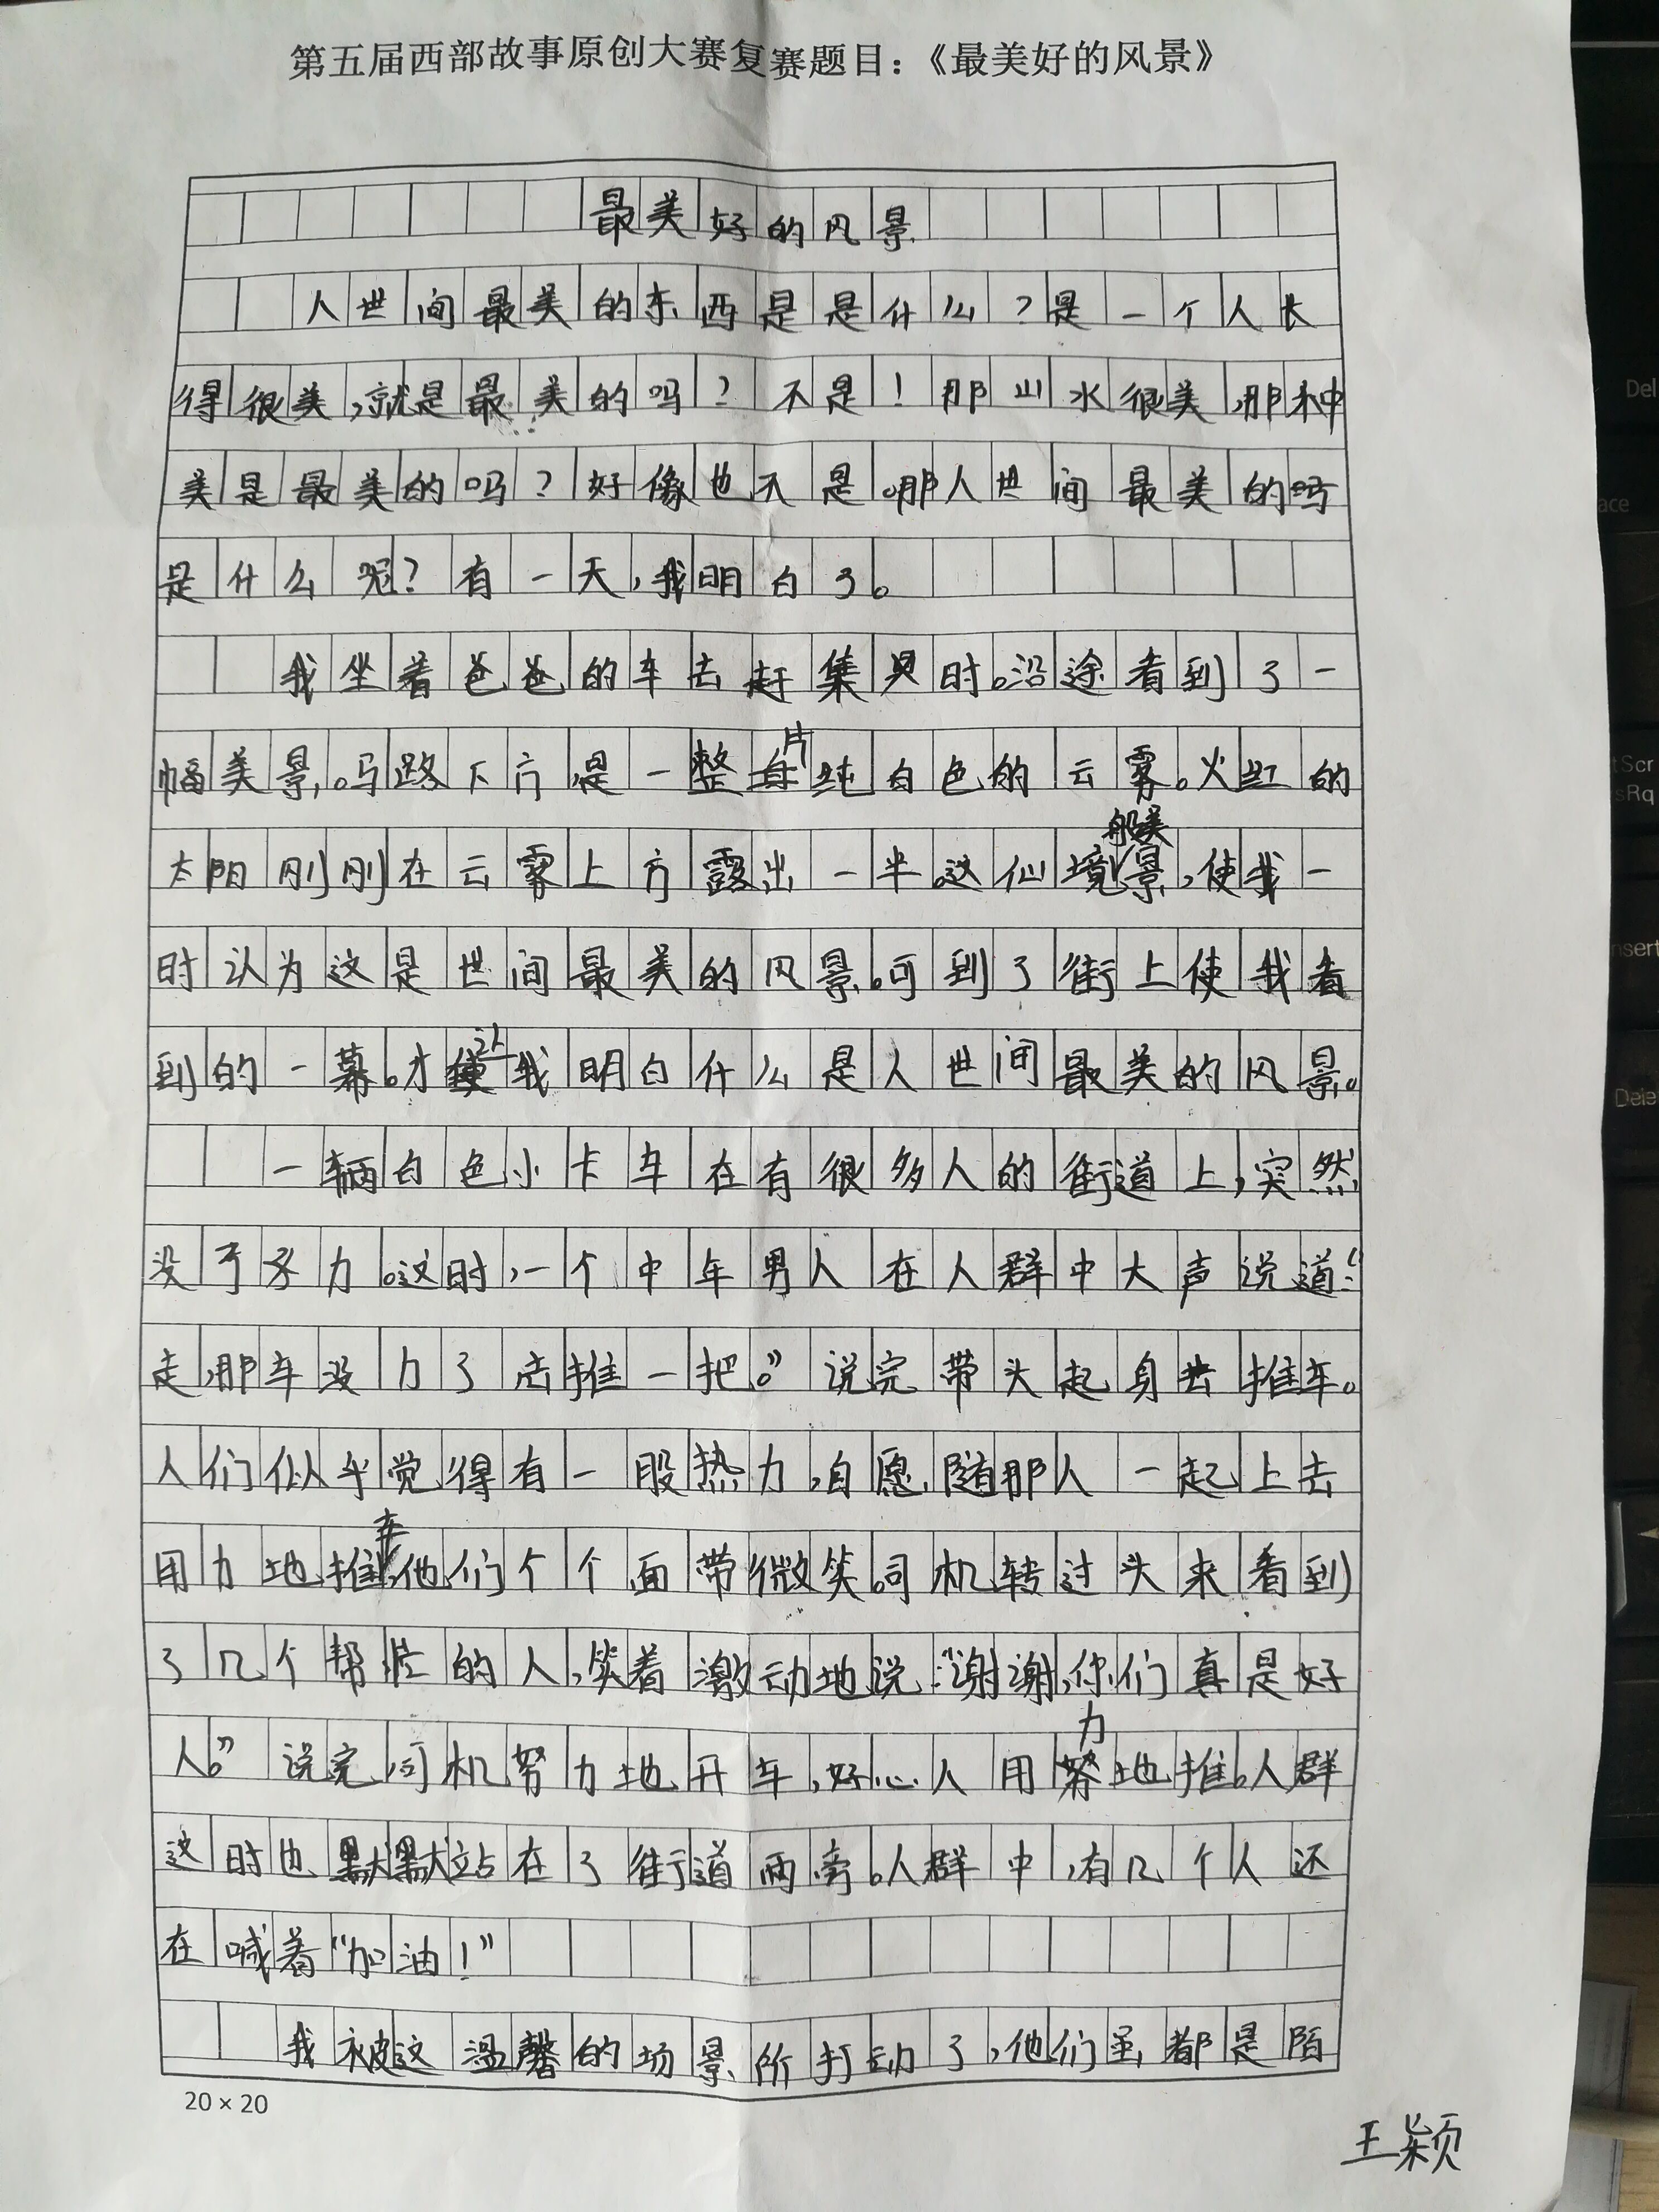 第五届西部故事原创大赛复赛题目:《最美好的风景》
最美好的风景
人世间最美的东西是是什么?是一个人长
得很美,就是最美的吗?不是!那山水很美,那种
美是最美的吗?好像也不是。那人世间最美的吗
是什么呢?有一天,我明白了。
我坐着爸爸的车去赶集具时。沿途看到了一
幅美景。马路下方是一整片纯白色的云雾。火红的
太阳刚刚在云雾上方露出一半。这仙境般美景,使我一
时认为这是世间最美的风景。可到了街上使我看
到的一幕。才让我明白什么是人世间最美的风景。
一辆白色小卡车在有很多人的街道上,突然
没了力。这时,一个中年男人在人群中大声说道:“
走,那车没力了去推一把。”说完带头起身去推车。
人们似乎觉得有一股热力,自愿随那人一起上去
用力地推车,他们个个面带微笑。司机转过头来看到
了几个帮忙的人,笑着激动地说:“谢谢,你们真是好
人。”说完,司机努力地开车,好心人用力地推。人群
这时也默默站在了街道两旁。人群中,有几个人还
在喊着“加油!”
我被这温馨的场景所打动了,他们虽都是陌
20×20
王颖
Del
ace
tScr
sRq
nsert
Dele